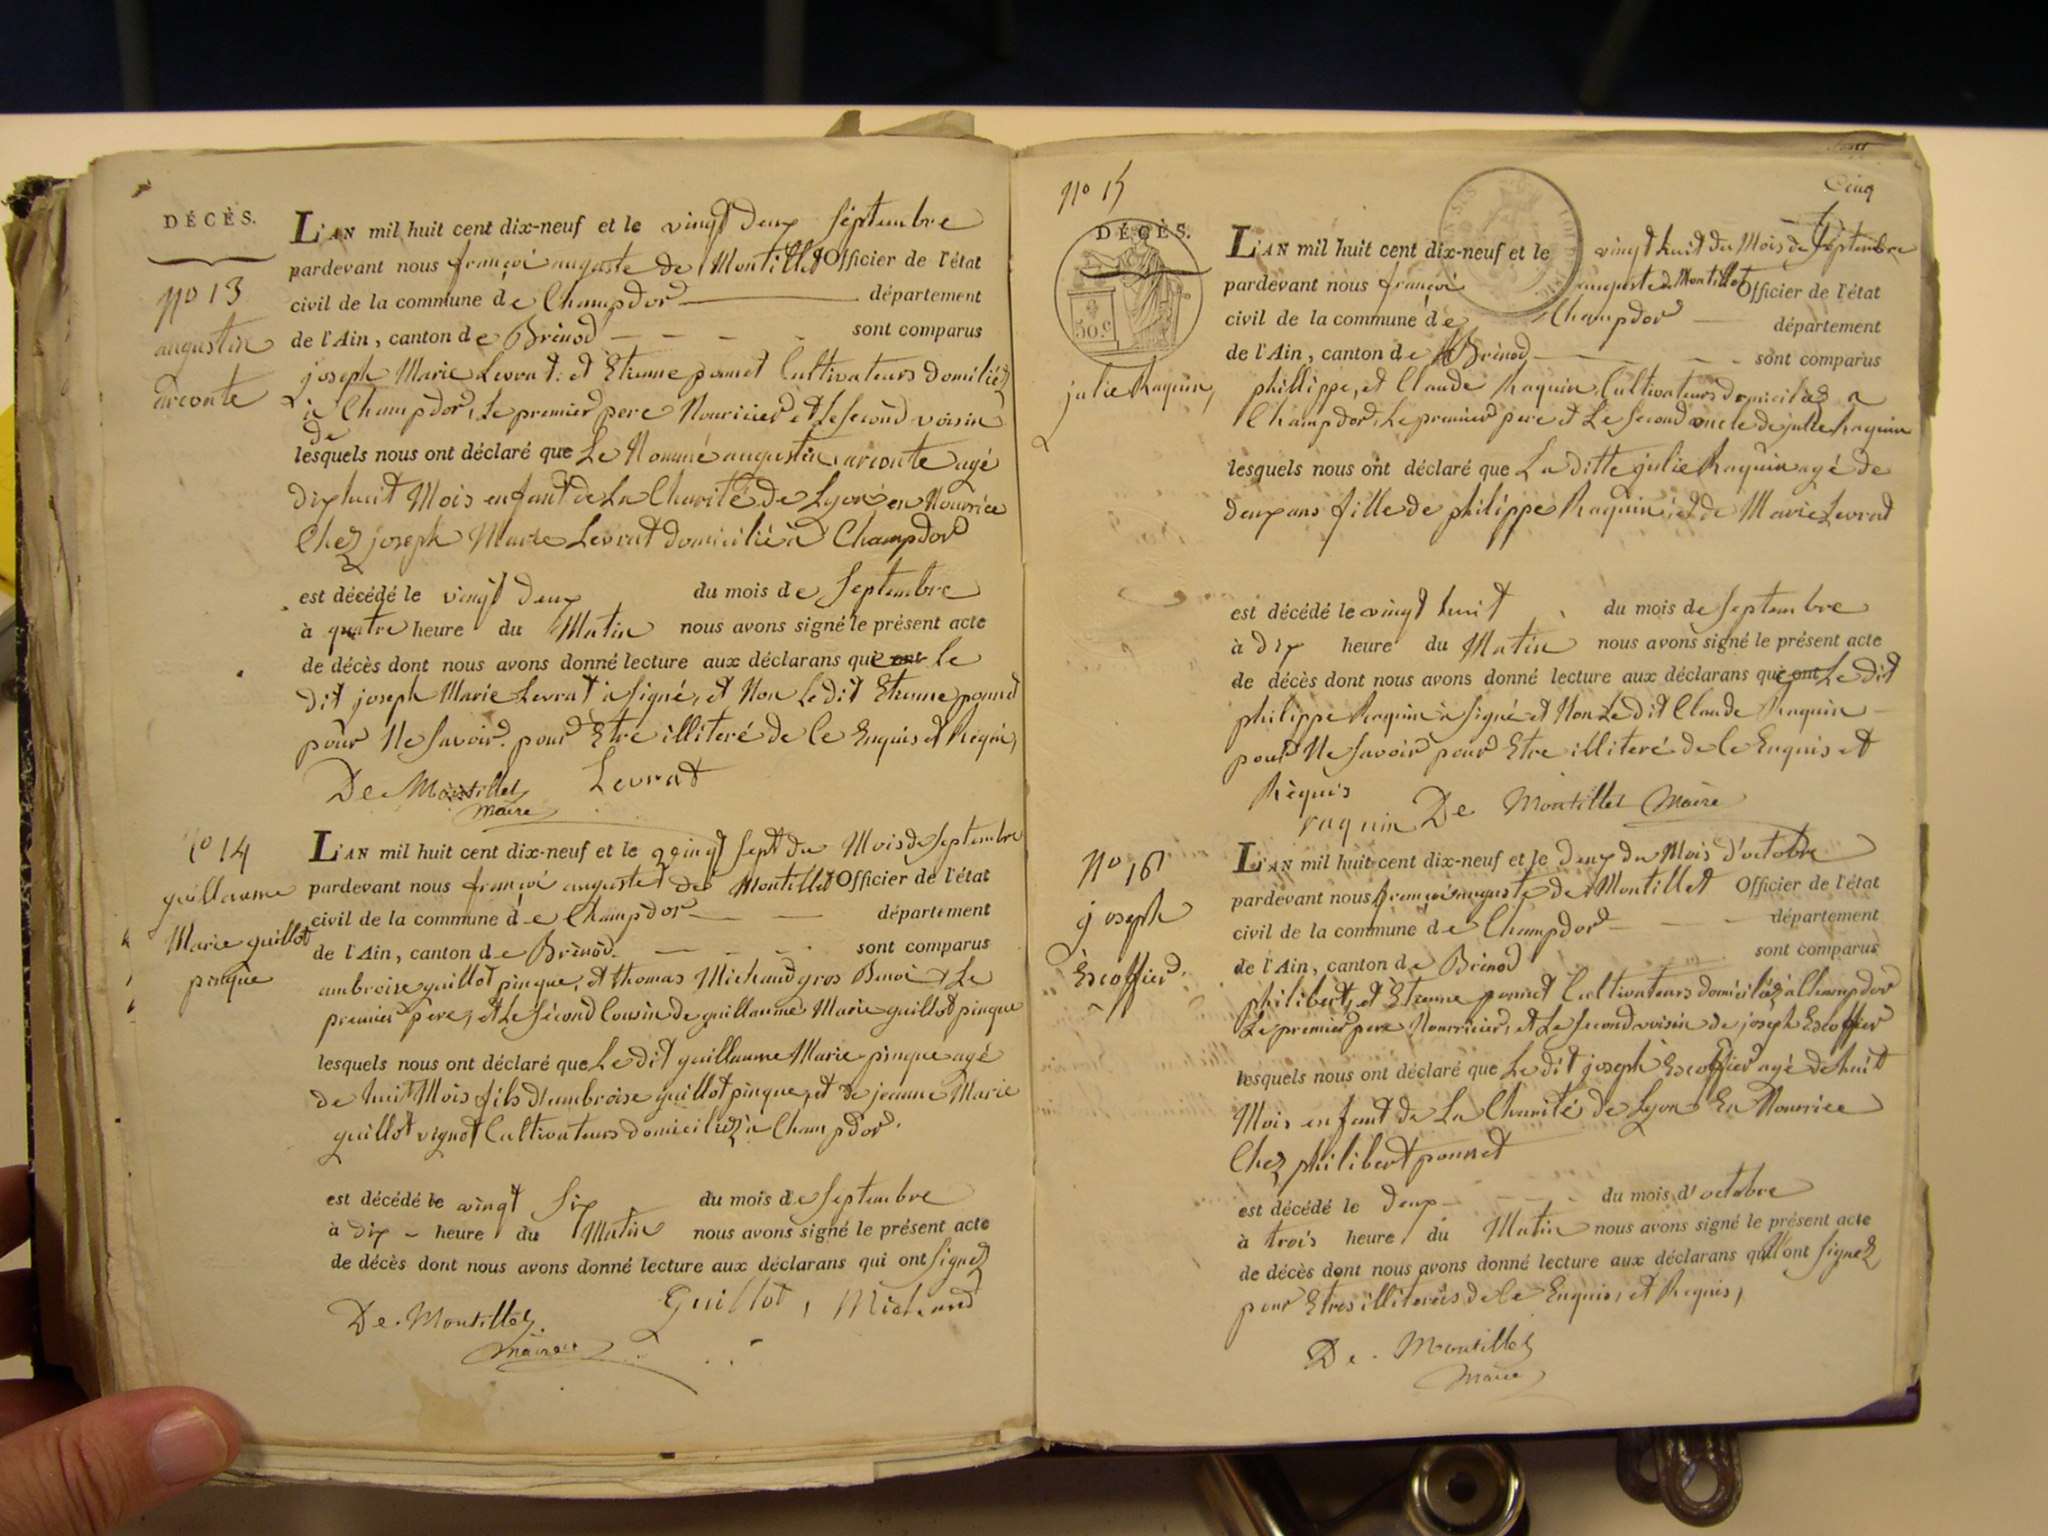 DÉCÈS.
No 13
augustin
arconte
L'AN mil huit cent dix-neuf et le vingt deux septembre
pardevant nous françoi auguste de Montillet Officier de l'état
civil de la commune de Champdor département
de l'Ain, canton de Brénod sont comparus
joseph Marie Levrat et Etienne ponnet Cultivateurs domiciliéz
à Champdor, Le premier pere Nouricier et Le second voisin
de
lesquels nous ont déclaré que Le Nommé augustin arconte agé
dixhuit Mois enfant de La Charité de Lyon en Nourrice
Chez joseph Marie Levrat domicilié à Champdor
est décédé le vingt deux du mois de Septembre
à quatre heure du Matin nous avons signé le présent acte
de décès dont nous avons donné lecture aux déclarans qui ont le
dit joseph Marie Levrat à signé, et Non Le dit Etienne ponnet
pour Ne Savoir pour Etre illiteré de Ce Enquis et Requis,
De Montillet Levrat
maire
No 14
guillaume
Marie guillot
pinque
L'AN mil huit cent dix-neuf et le vingt sept du Mois de Septembre
pardevant nous françoi auguste de Montillet Officier de l'état
civil de la commune de Champdor département
de l'Ain, canton de Brénod sont comparus
ambroise guillot pinque, et thomas Michaud gros Benoi Le
premier pere, et Le Sécond Cousin de guillaume Marie guillot pinque
lesquels nous ont déclaré que Le dit guillaume Marie pinque agé
de huit Mois fils d'ambroise guillot pinque, et de jeanne Marie
guillot vignot Cultivateurs domiciliéz à Champdor.
est décédé le vingt Six du mois de Septembre
à dix heure du Matin nous avons signé le présent acte
de décès dont nous avons donné lecture aux déclarans qui ont signéz
De Montillet Guillot, Michaud
maire
Cinq
No 15
DÉCÈS.
50.c
julie Raquin,
L'AN mil huit cent dix-neuf et le vingt huit du Mois de Septembre
pardevant nous françoi auguste de Montillet Officier de l'état
civil de la commune de Champdor département
de l'Ain, canton de Brénod sont comparus
phillippe, et Claude Raquin Cultivateurs domiciliéz a
Champdor, Le premier pere et Le Second oncle de julie Raquin
lesquels nous ont déclaré que La ditte julie Raquin agé de
deux ans fille de philippe Raquin, et de Marie Levrat
est décédé le vingt huit du mois de Septembre
à dix heure du Matin nous avons signé le présent acte
de décès dont nous avons donné lecture aux déclarans qui ont Le dit
philippe Raquin à Signé et Non Le dit Claude Raquin
pour Ne Savoir pour Etre illiteré de Ce Enquis et
Réquis
raquin De Montillet Maire
No 16
joseph
Escoffier.
L'AN mil huit cent dix-neuf et le deux du Mois d'octobre
pardevant nous françoi auguste de Montillet Officier de l'état
civil de la commune de Champdor département
de l'Ain, canton de Brénod sont comparus
philibert, et Etienne ponnet Cultivateurs domiciliéz à Champdor
Le premier pere Nourricier, et Le Second voisin de joseph Escoffier
lesquels nous ont déclaré que Le dit joseph Escoffier agé de huit
Mois enfant de La Charité de Lyon En Nourrice
Chez philibert ponnet
est décédé le deux du mois d'octobre
à trois heure du Matin nous avons signé le présent acte
de décès dont nous avons donné lecture aux déclarans qui ont Signéz
pour Etres illiterés de Ce Enquis, et Requis,
De Montillet
Maire